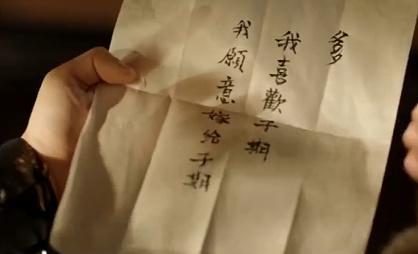 多多
我喜歡子期
我願意嫁給子期